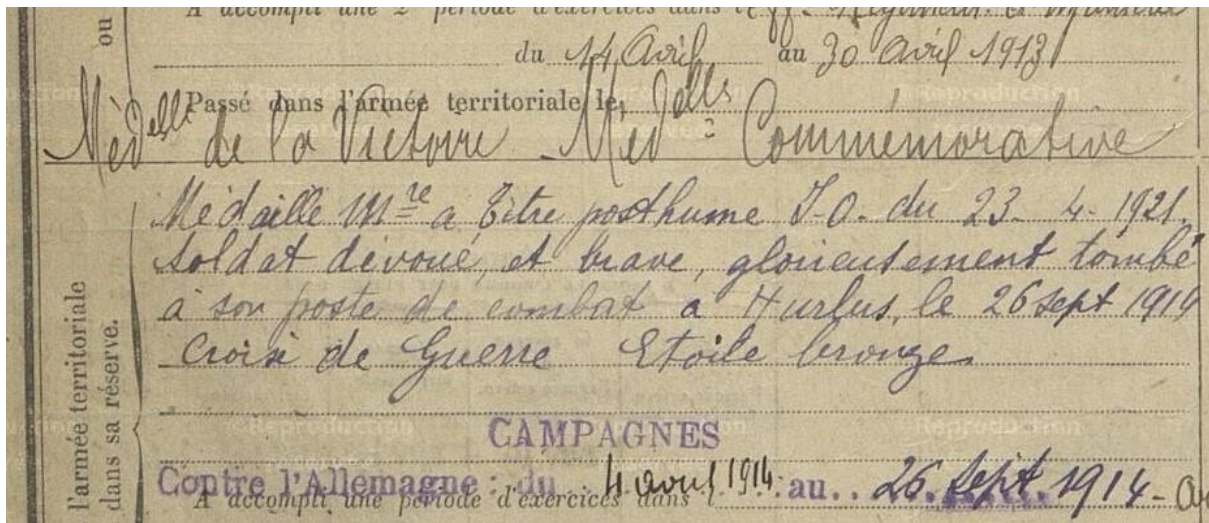 A accompli une 2e période d'exercices dans l
du 14 Avril au 30 Avril 1913
ou
Passé dans l'armée territoriale le
Médelle de la Victoire Médelle Commémorative
Médaille Mre a titre posthume J.O. du 23-4-1921.
soldat dévoué, et brave, glorieusement tombé
à son poste de combat a Hurlus, le 26 sept 1914
Croix de Guerre Etoile bronze
l'armée territoriale
dans sa réserve.
CAMPAGNES
Contre l'Allemagne : du 4 aout 1914 au 26 Sept 1914
A accompli une période d'exercices dans l